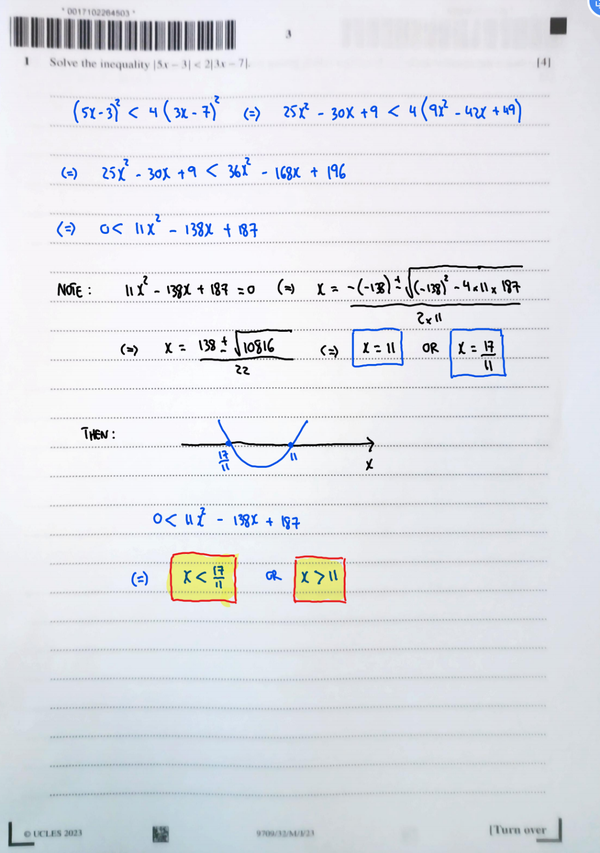 * 0017102264503 *
3
1 Solve the inequality |5x − 3| < 2|3x − 7|. [4]
(5x-3)² < 4(3x-7)² (=) 25x² - 30x + 9 < 4(9x² - 42x + 49)
(=) 25x² - 30x + 9 < 36x² - 168x + 196
(=) 0 < 11x² - 138x + 187
NOTE: 11x² - 138x + 187 = 0 (=) x = (-(-138) ± √((-138)² - 4×11×187)) / (2×11)
(=) x = (138 ± √10816) / 22 (=) x = 11 OR x = 17/11
THEN:
17/11 11 x
0 < 11x² - 138x + 187
(=) x < 17/11 OR x > 11
© UCLES 2023 9709/32/M/J/23 [Turn over